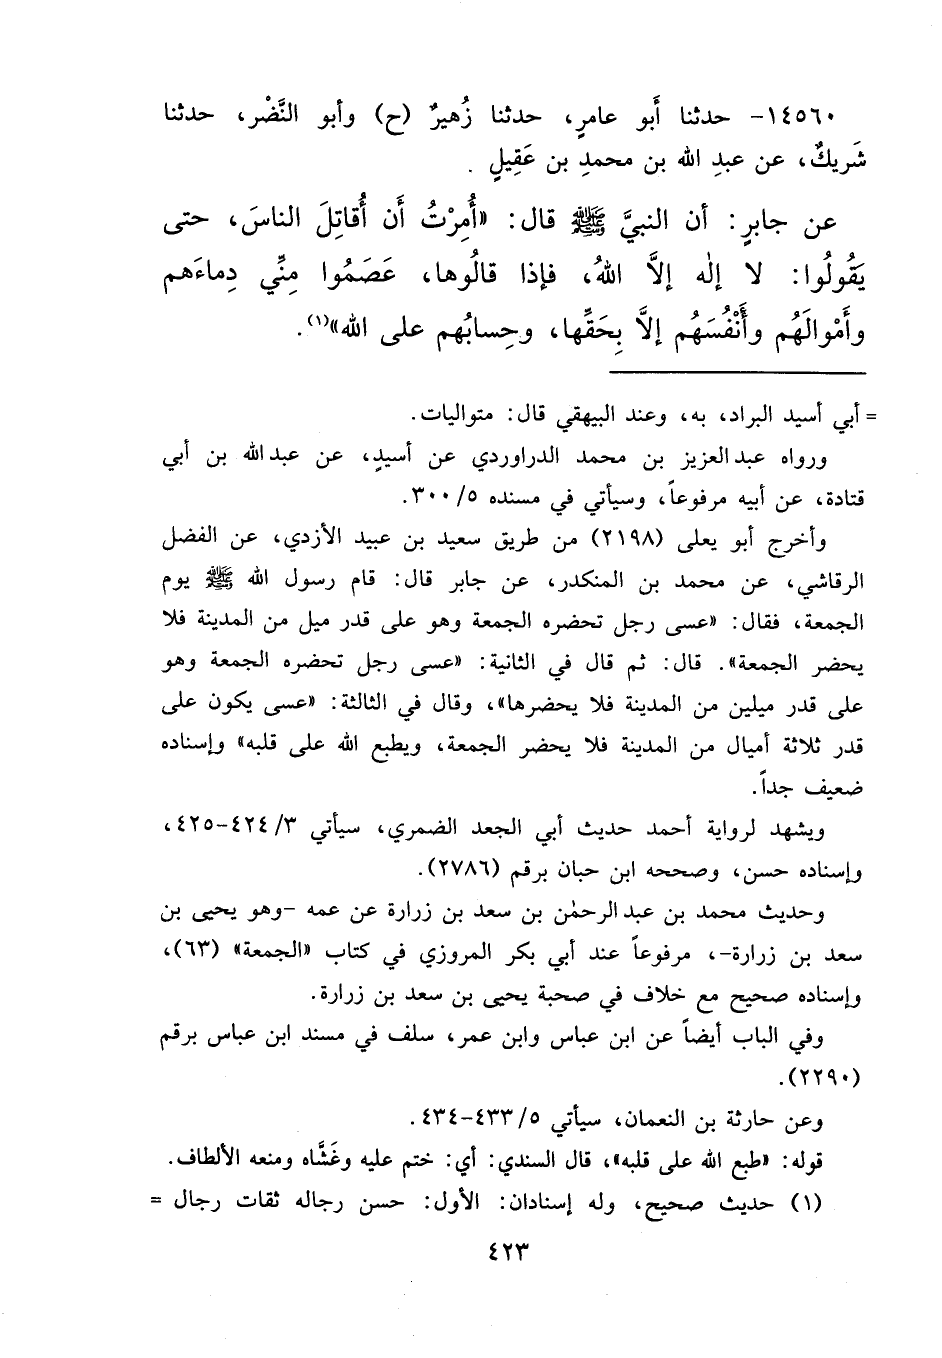 ١٤٥٦٠- حدثنا أَبو عامرٍ، حدثنا زُهيرٌ (ح) وأبو النَّضْر، حدثنا
شَريكٌ، عن عبدِ الله بن محمدِ بن عَقِيلٍ .
عن جابرٍ: أن النبيَّ ﷺ قال: «أُمِرْتُ أَن أُقاتِلَ الناسَ، حتى
يَقُولُوا: لا إلٰه إلاَّ اللهُ، فإذا قالُوها، عَصَمُوا مِنِّي دِماءَهم
وأَمْوالَهُم وأَنْفُسَهُم إلاَّ بِحَقِّها، وحِسابُهم على الله»(١).
= أبي أسيد البراد، به، وعند البيهقي قال: متواليات.
ورواه عبد العزيز بن محمد الدراوردي عن أسيدٍ، عن عبد الله بن أبي
قتادة، عن أبيه مرفوعاً، وسيأتي في مسنده ٣٠٠/٥.
وأخرج أبو يعلى (٢١٩٨) من طريق سعيد بن عبيد الأزدي، عن الفضل
الرقاشي، عن محمد بن المنكدر، عن جابر قال: قام رسول الله ﷺ يوم
الجمعة، فقال: «عسى رجل تحضره الجمعة وهو على قدر ميل من المدينة فلا
يحضر الجمعة». قال: ثم قال في الثانية: «عسى رجل تحضره الجمعة وهو
على قدر ميلين من المدينة فلا يحضرها»، وقال في الثالثة: «عسى يكون على
قدر ثلاثة أميال من المدينة فلا يحضر الجمعة، ويطبع الله على قلبه» وإسناده
ضعيف جداً.
ويشهد لرواية أحمد حديث أبي الجعد الضمري، سيأتي ٤٢٤/٣-٤٢٥،
وإسناده حسن، وصححه ابن حبان برقم (٢٧٨٦).
وحديث محمد بن عبد الرحمٰن بن سعد بن زرارة عن عمه -وهو يحيى بن
سعد بن زرارة-، مرفوعاً عند أبي بكر المروزي في كتاب «الجمعة» (٦٣)،
وإسناده صحيح مع خلاف في صحبة يحيى بن سعد بن زرارة.
وفي الباب أيضاً عن ابن عباس وابن عمر، سلف في مسند ابن عباس برقم
(٢٢٩٠).
وعن حارثة بن النعمان، سيأتي ٤٣٣/٥-٤٣٤.
قوله: «طبع الله على قلبه»، قال السندي: أي: ختم عليه وغَشَّاه ومنعه الألطاف.
(١) حديث صحيح، وله إسنادان: الأول: حسن رجاله ثقات رجال =
٤٢٣